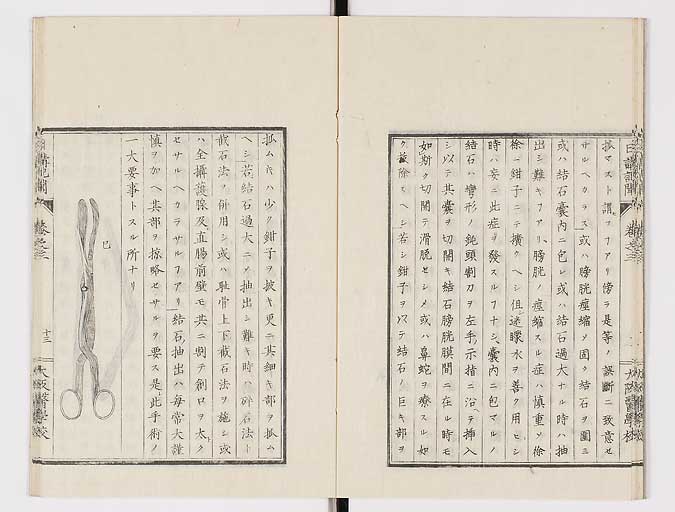 接マスト謂フアリ傍ラ是等ノ誤断ニ致意セ
サルヘカラス或ハ膀胱痙縮ノ固ク結石ヲ圍ミ
或ハ結石嚢内ニ包レ或ハ結石過大ナル時ハ抽
出シ難キフアリ膀胱ノ痙縮スル症ハ慎重ソ徐
徐ニ鉗子ニテ擴クヘシ但迷矇水ヲ善ク用ヒシ
時ハ妄ニ此症ヲ發スルフナシ嚢内ニ包マルノ
結石ハ彎形ノ鈍頭割刀ヲ左手ノ示指ニ沿テ挿入
シ以テ其嚢ヲ切開キ結石膀胱膜間ニ在ル時モ
如斯ク切開テ滑脱セシメ或ハ鼻蛇ヲ療スル如
ク截除スヘシ若シ鉗子ヲ以テ結石ノ巨キ部ヲ
抓ムキハ少ク鉗子ヲ披キ更ニ其細キ部ヲ抓ム
ヘシ若結石過大ニメ抽出シ難キ時ハ碎石法ト
截石法ヲ併用シ或ハ耻骨上下截石法ヲ施シ或
ハ全攝護腺及直腸前壁モ共ニ割テ創口ヲ太ク
セサルヘカラサルフアリ結石抽出ハ毎常大謹
慎ヲ加ヘ其部ヲ掠略セサルヲ要ス是此手術ノ
一大要事トスル所ナリ
巳
十三
大阪醫學校